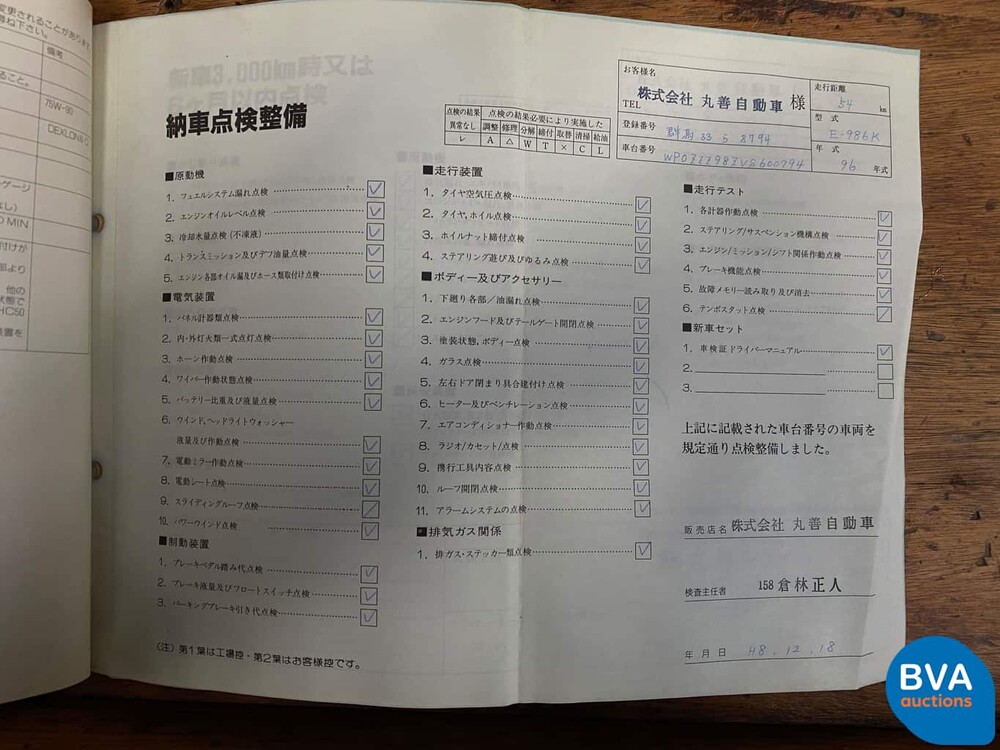 変更されることがあります
尋ね下さい。
備考
ること。
75W-90
DEXLON
ゲージ
MIN
付けが
部より
他の
状態で
HC50
装置を
新車3,000km時又は
納車点検整備
点検の結果
点検の結果必要により実施した
異常なし 調整 修理 分解 締付 取替 清掃 給油
レ A △ W T × C L
お客様名
株式会社 丸善自動車 様
TEL
登録番号
群馬 33 5 8794
車台番号
WP0ZZZ98ZVS600794
走行距離
54 km
型式
E-986K
年式
96 年式
■原動機
1. フュエルシステム漏れ点検
2. エンジンオイルレベル点検
3. 冷却水量点検(不凍液)
4. トランスミッション及びデフ油量点検
5. エンジン各部オイル漏及びホース類取付け点検
■電気装置
1. パネル計器類点検
2. 内・外灯火類一式点灯点検
3. ホーン作動点検
4. ワイパー作動状態点検
5. バッテリー比重及び液量点検
6. ウインド,ヘッドライトウォッシャー
液量及び作動点検
7. 電動ミラー作動点検
8. 電動シート点検
9. スライディングルーフ点検
10. パワーウインド点検
■制動装置
1. ブレーキペダル踏み代点検
2. ブレーキ液量及びフロートスイッチ点検
3. パーキングブレーキ引き代点検
(注) 第1葉は工場控・第2葉はお客様控です。
■走行装置
1. タイヤ空気圧点検
2. タイヤ,ホイル点検
3. ホイルナット締付点検
4. ステアリング遊び及びゆるみ点検
■ボディー及びアクセサリー
1. 下廻り各部/油漏れ点検
2. エンジンフード及びテールゲート開閉点検
3. 塗装状態,ボディー点検
4. ガラス点検
5. 左右ドア閉まり具合建付け点検
6. ヒーター及びベンチレーション点検
7. エアコンディショナー作動点検
8. ラジオ/カセット/点検
9. 携行工具内容点検
10. ルーフ開閉点検
11. アラームシステムの点検
■排気ガス関係
1. 排ガス・ステッカー類点検
■走行テスト
1. 各計器作動点検
2. ステアリング/サスペンション機構点検
3. エンジン/ミッション/シフト関係作動点検
4. ブレーキ機能点検
5. 故障メモリー読み取り及び消去
6. テンポスタット点検
■新車セット
1. 車検証ドライバーマニュアル
2.
3.
上記に記載された車台番号の車両を
規定通り点検整備しました。
販売店名 株式会社 丸善自動車
検査主任者 158 倉林正人
年月日 H8.12.18
BVA
auctions